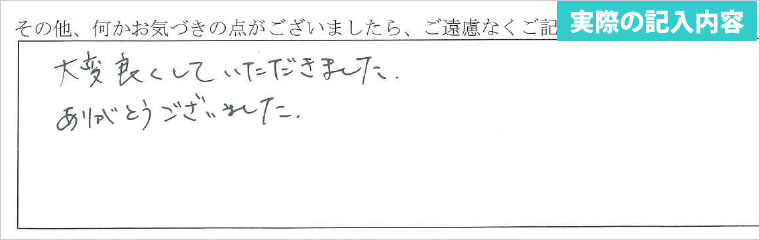 その他、何かお気づきの点がございましたら、ご遠慮なくご記
実際の記入内容
大変良くしていただきました.
ありがとうございました.